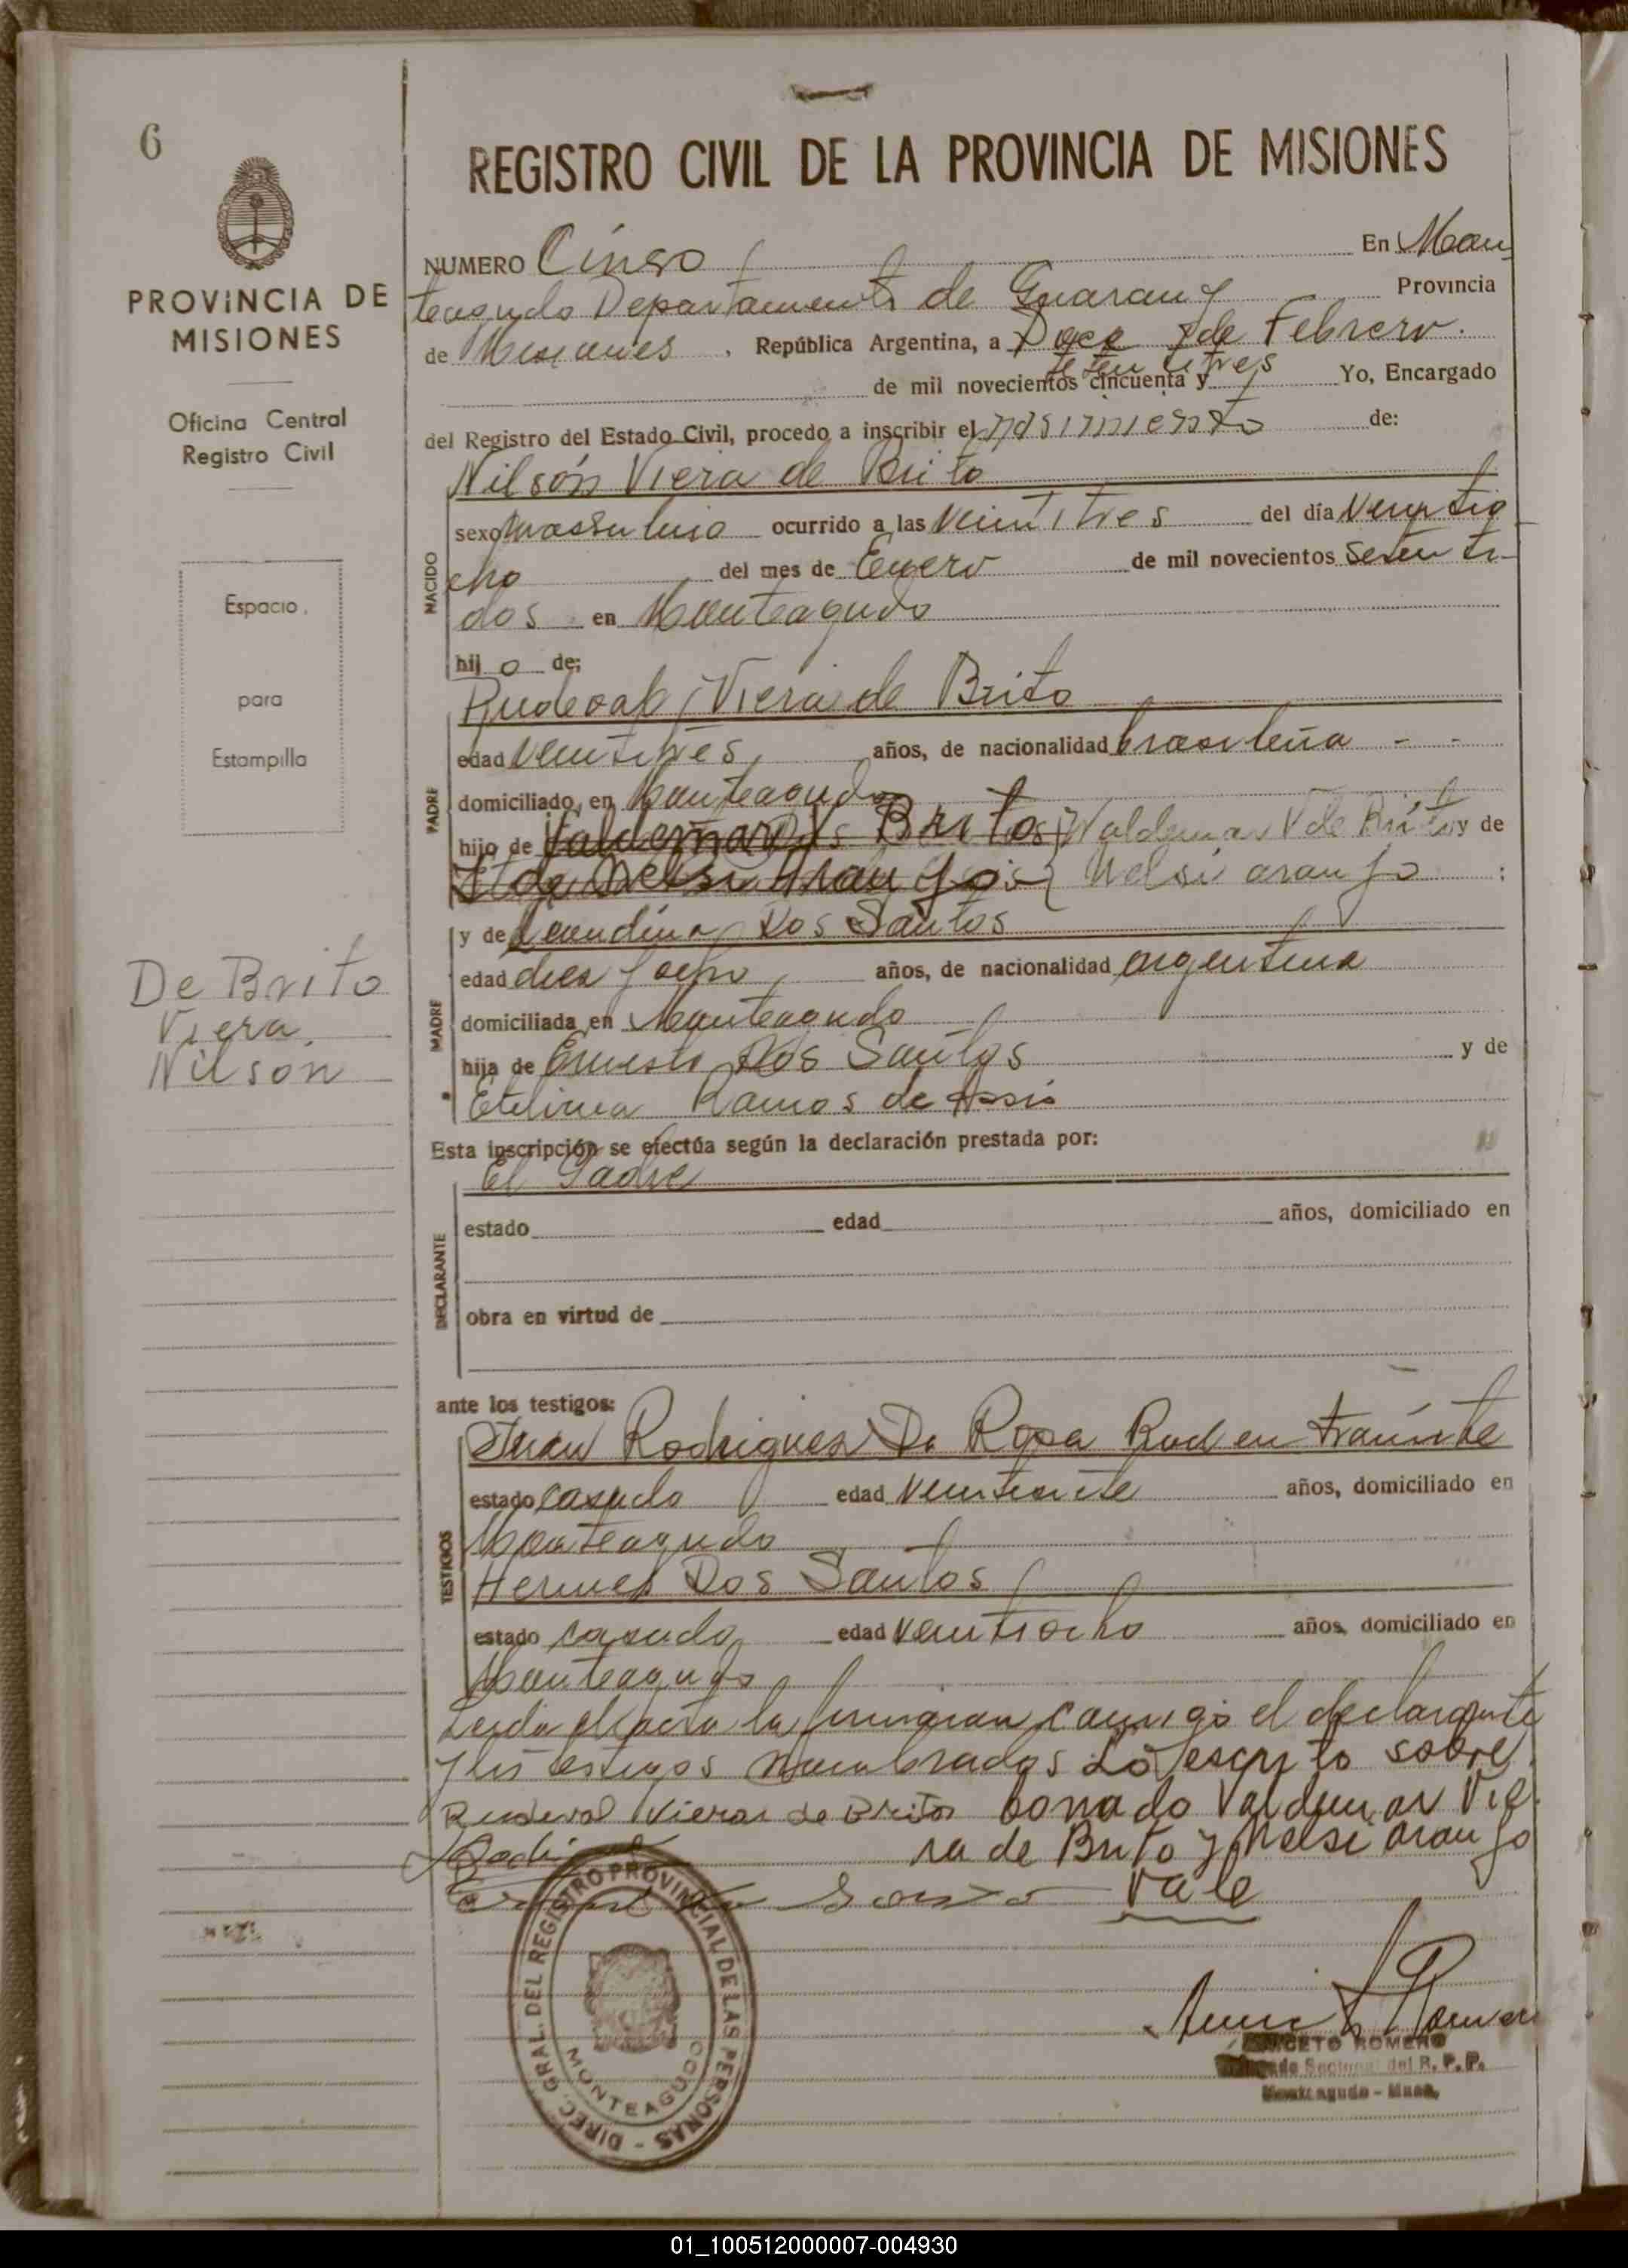 6
PROVINCIA DE
MISIONES
Oficina Central
Registro Civil
Espacio
para
Estampilla
De Brito
Viera
Nilsón
REGISTRO CIVIL DE LA PROVINCIA DE MISIONES
NUMERO Cinco En Mon
teagudo Departamento de Guarany Provincia
de Misiones, República Argentina, a Doce de Febrero
setenta y tres
de mil novecientos cincuenta y Yo, Encargado
del Registro del Estado Civil, procedo a inscribir el nasimiento de:
Nilsón Viera de Brito
NACIDO
sexo massulino ocurrido a las veintitres del día Veintio
cho del mes de Enero de mil novecientos setenti
dos en Monteagudo
hijo de:
Viera de Brito
PADRE
edad veintitres años, de nacionalidad brasileña - -
domiciliado en Monteagudo
hijo de Valdemar Brito Valdemar V de Brito y de
Nelsi Araujo Nelsi araujo ;
y de Leondina Dos Santos
MADRE
edad diez y ocho años, de nacionalidad argentina
domiciliada en Monteagudo
hija de Ernesto Dos Santos y de
Etelvina Ramos de Assis
Esta inscripción se efectúa según la declaración prestada por:
El Padre
DECLARANTE
estado edad años, domiciliado en
obra en virtud de
ante los testigos:
Juan Rodriguez Da Rosa Rad en tramite
TESTIGOS
estado casado edad veintisiete años, domiciliado en
Monteagudo
Hermes Dos Santos
estado casado edad veintiocho años, domiciliado en
Monteagudo
Leida el acta la firmaran conmigo el declarante
y los testigos nombrados Lo escrito sobre
Ruderval Vieras de Britos borrado Valdemar Vie
ra de Brito y Nelsi araujo
Vale
DIREC. GRAL. DEL REGISTRO PROVINCIAL DE LAS PERSONAS -
MONTEAGUDO
ANICETO ROMERO
Seccional del R. P. P.
Monteagudo - Mnes.
01_100512000007-004930